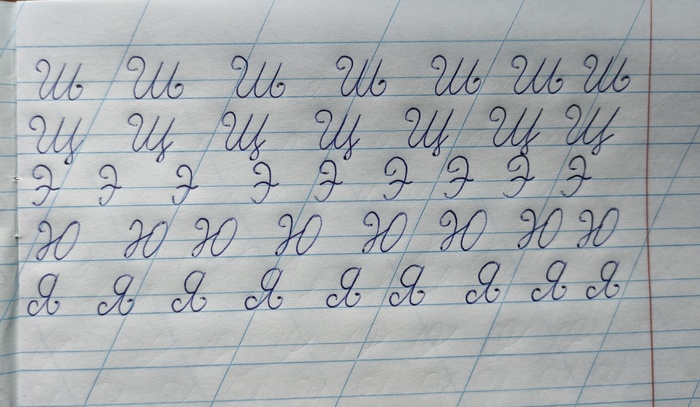 Ш Ш Ш Ш Ш Ш Ш
Щ Щ Щ Щ Щ Щ Щ
Э Э Э Э Э Э Э Э Э
Ю Ю Ю Ю Ю Ю Ю Ю
Я Я Я Я Я Я Я Я Я